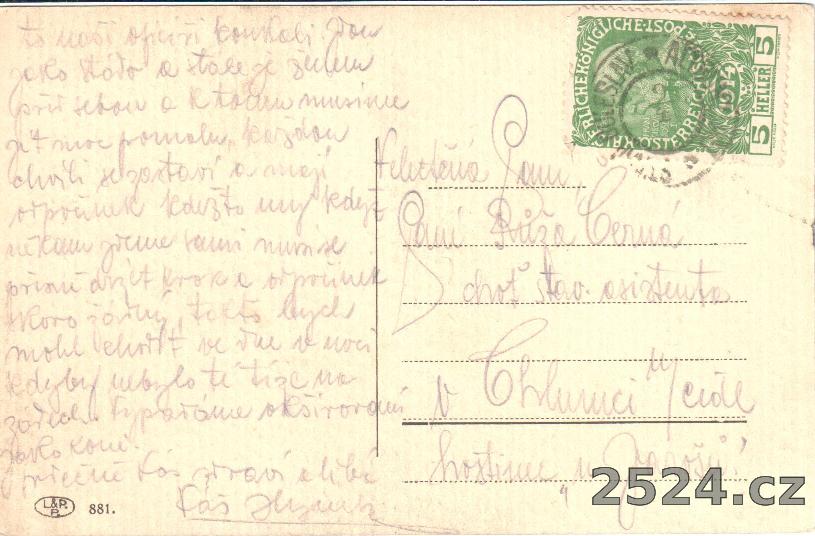 to naši oficíři koukali. Jdou
jako stádo a stále je ženem
před sebou a k tomu musíme
jít moc pomalu, každou
chvíli se zastaví a mají
odpočinek kdežto my když
někam jdeme sami musí se
přísně držet krok a odpočinek
skoro žádný, takto bych
mohl chodit ve dne v noci
kdyby nebylo té tíže na
zádech. Vypadáme okšírovaní
jako koně.
srdečně Vás zdraví a líbá
Váš
Velectěná Paní
Paní Růža Černá
choť stav. asistenta
v Chlumci n/Cidl
hostinec u
KAISERLICHE KÖNIGLICHE ÖSTERREICHISCHE POST
5 HELLER 5
1914
L&P.
P.
881.
2524.cz